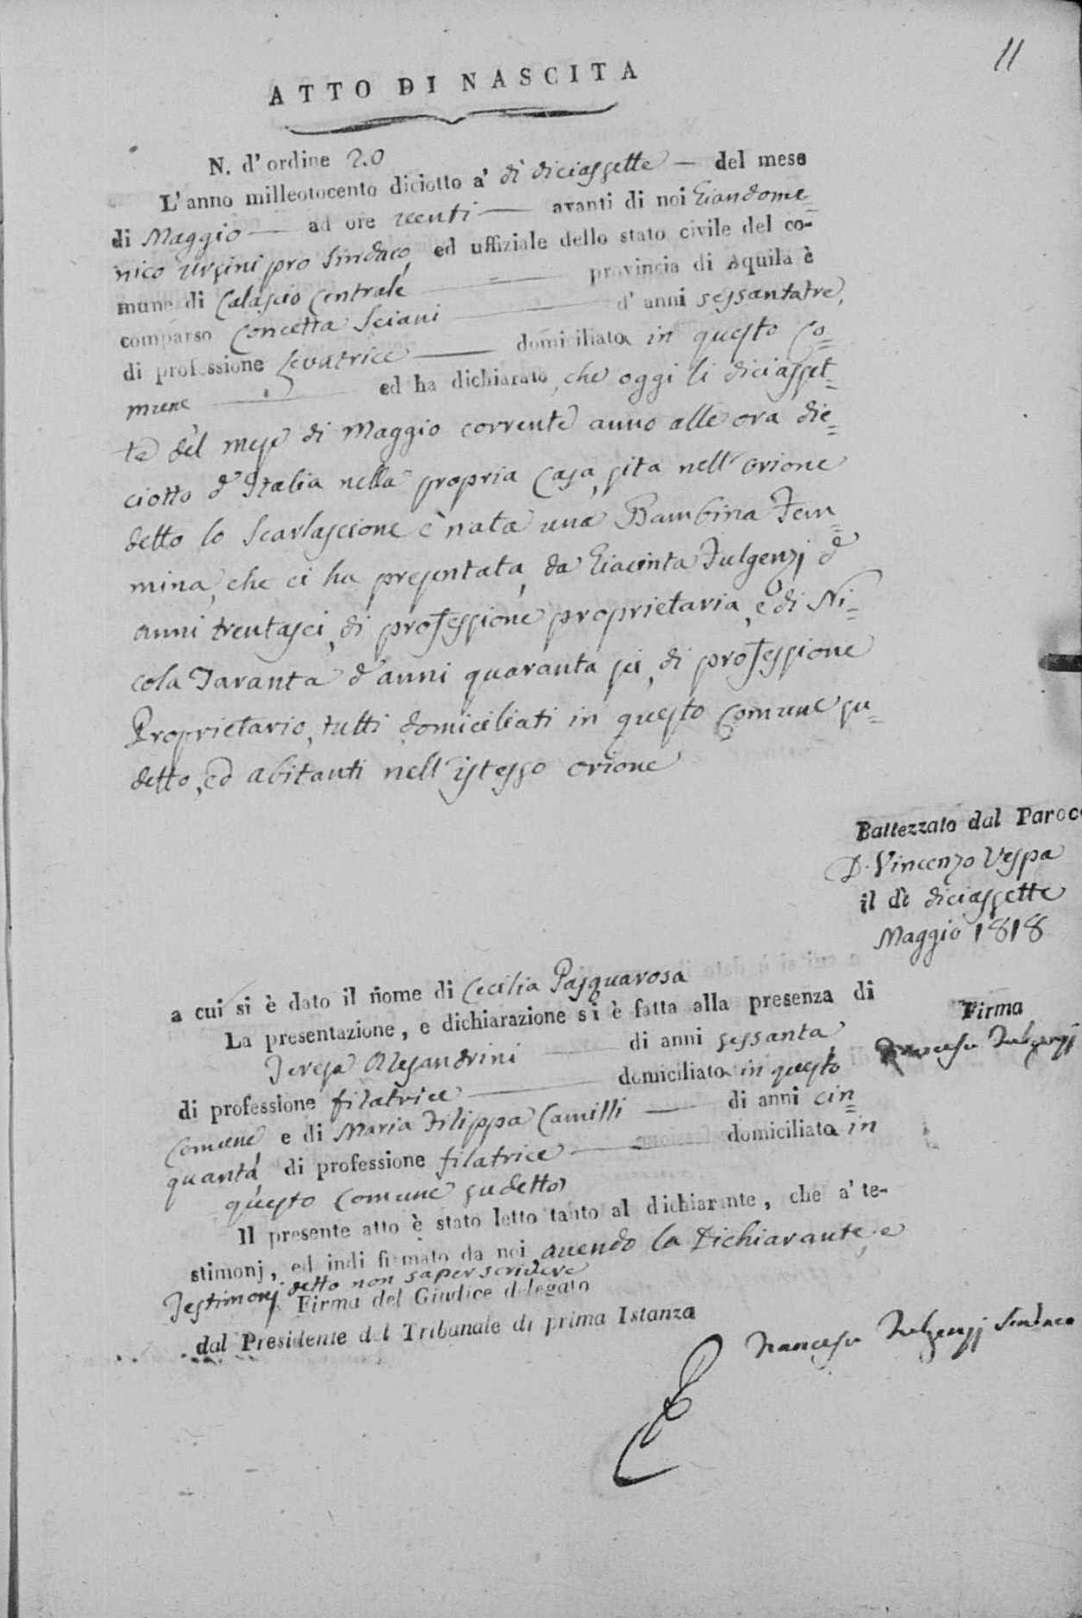 11
ATTO DI NASCITA
N. d'ordine 20
L'anno milleotocento diciotto a' dì diciassette — del mese
di Maggio — ad ore venti — avanti di noi Giandome=
nico Ursini pro Sindaco, ed uffiziale dello stato civile del co-
mune di Calascio Centrale — provincia di Aquila è
comparso Concetta Sciani — d' anni sessantatre,
di professione levatrice — domiciliata in questo Co=
mune — ed ha dichiarato, che oggi li diciasset=
te del mese di Maggio corrente anno alle ora die=
ciotto d'Italia nella propria Casa, sita nell'orione
detto lo Scarlascione è nata una Bambina Fem=
mina, che ci ha presentata, da Giacinta Fulgenzj d'
anni trentasei, di professione proprietaria, e di Ni=
cola Taranta d'anni quaranta sei, di professione
Proprietario, tutti domiciliati in questo Comune su=
detto, ed abitanti nell'istesso orione
Battezzato dal Paroco
D. Vincenzo Vespa
il dì diciassette
Maggio 1818
a cui si è dato il nome di Cecilia Pasquarosa
La presentazione, e dichiarazione si è fatta alla presenza di
Teresa Alesandrini — di anni sessanta,
di professione filatrice — domiciliata in questo
Comune e di Maria Filippa Camilli — di anni cin=
quanta, di professione filatrice — domiciliata in
questo Comune sudetto
Firma
Francesco Fulgenzj
Il presente atto è stato letto tanto al dichiarante, che a' te-
stimonj, ed indi firmato da noi avendo la Dichiarante, e
Testimonj detto non saper scrivere
Firma del Giudice delegato
dal Presidente del Tribunale di prima Istanza
Francesco Fulgenzj Sindaco